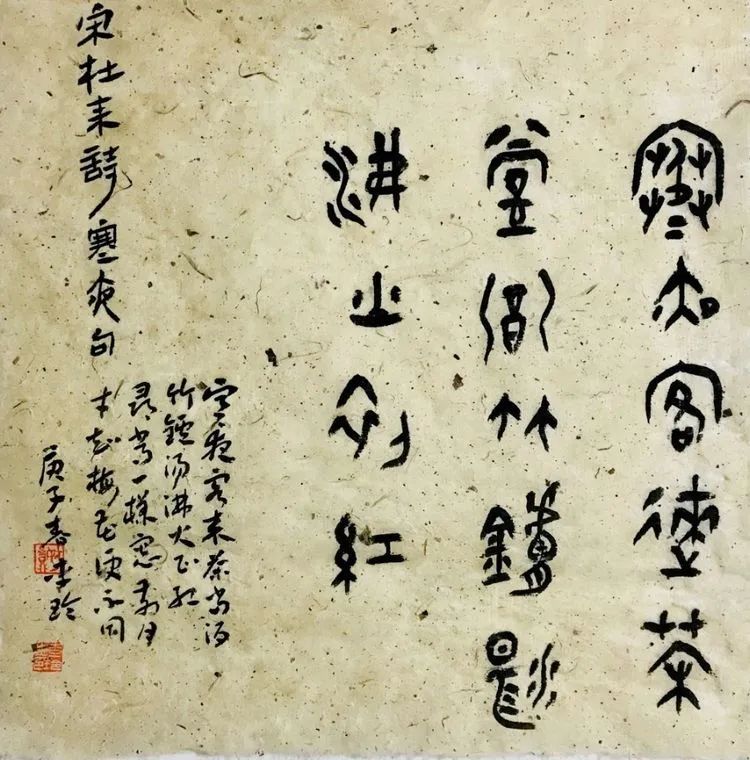 寒夜客來茶
當酒竹鑪湯
沸火初紅
宋杜耒詩寒夜句
寒夜客来茶当酒
竹鑪汤沸火初红
尋常一樣窓前月
才有梅花便不同
庚子春玲